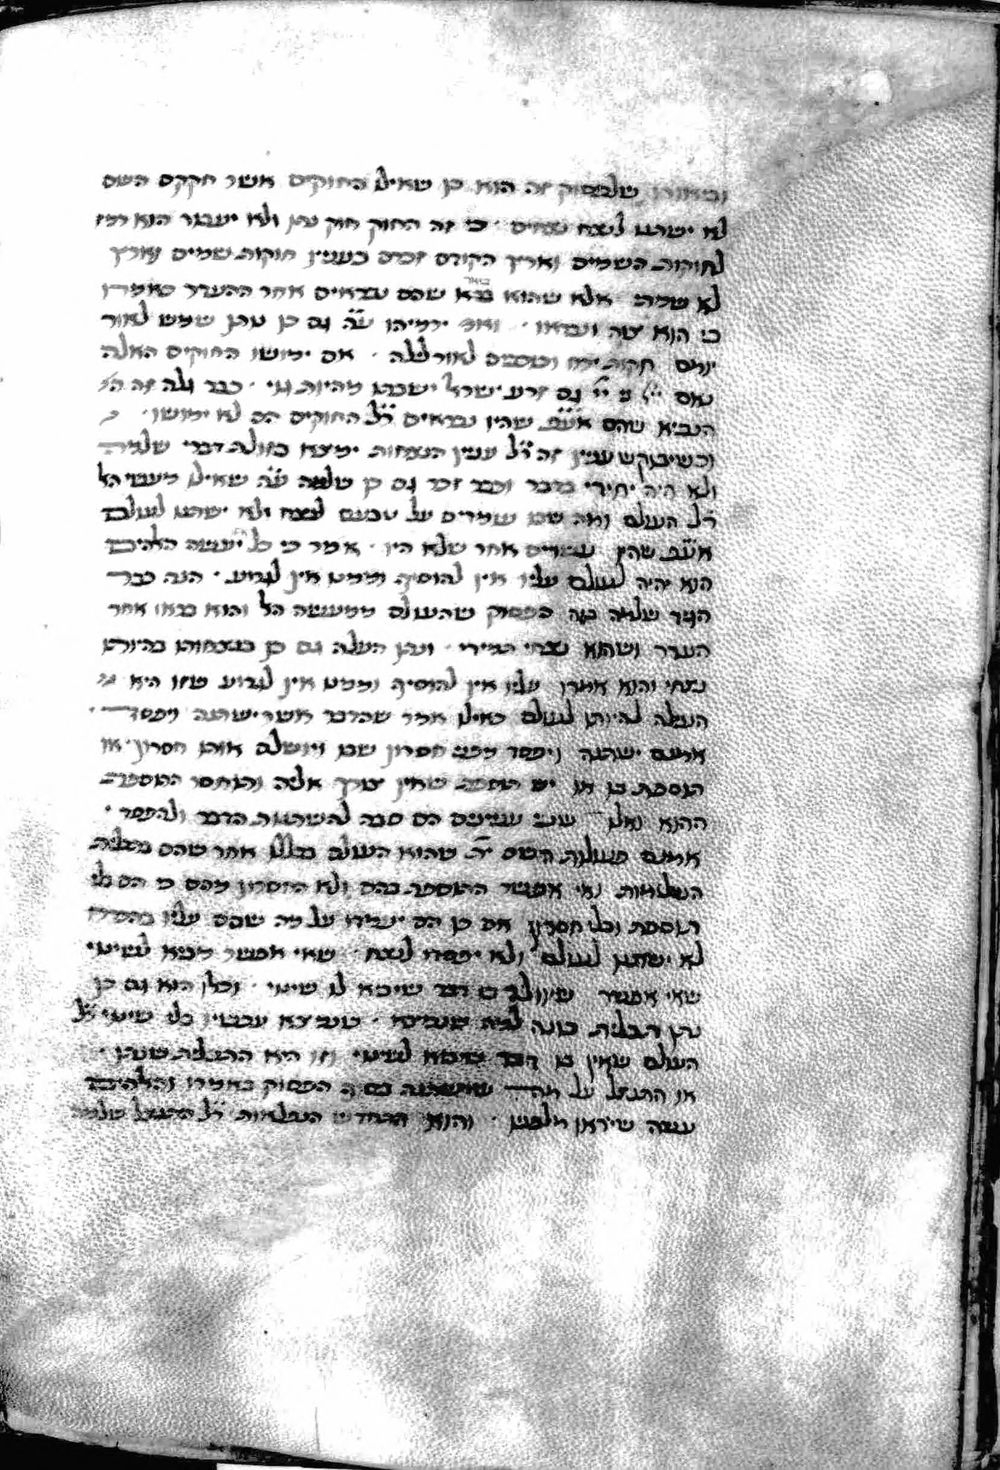 ובאורו שלפסוק זה הוא כן שאילו החוקים אשר חקקם השם
לא ישתנו לנצח נצחים · כי זה החוק חוק נתן ולא יעבור הוא רמז
לחוקות השמים וארץ הקודם זכרם כענין חוקות שמים וארץ
לא שמתי אלא שהוא באר שהם נבראים אחר ההעדר באמרו
כי הוא צוה ונבראו · ואמ׳ ירמיהו ע״ה גם כן נותן שמש לאור
יומם חקות ירח וכוכבים לאור לילה · אם ימושו החוקים האלה
נאם יי׳ גם זרע ישראל ישבתו מהיות גוי · כבר גלה זה
הנביא שהם אע״פ שהיו נבראים ר״ל החוקים הם לא ימושו ·
וכשיבוקש ענין זה ר״ל ענין הנצחות ימצא בזולת דברי שלמה
ולא היה יחידי בדבר וכבר זכר גם כן שלמה ע״ה שאילו מעשי האל
ר״ל העולם ומה שבו עומדים על טבעם לנצח ולא ישתנו לעולם
אע״פ שהיו עשוים אחר שלא היו · אמר כי כל יעשה האלהים
הוא יהיה לעולם עליו אין להוסיף וממנו אין לגרוע · הנה כבר
הגיד שלמה בזה הפסוק שהעולם ממעשה האל והוא בראו אחר
העדר ושהוא נצחי תמידי · ונתן העלה גם כן בנצחותו בהיותו
נצחי והוא אמרו עליו אין להוסיף וממנו אין לגרוע שזו היא
העלה להיותו לעולם כאילו אמר שהדבר אשר ישתנה ויפסד
אמנם ישתנה ויפסד מפני חסרון שבו ויושלם אותו חסרון או
תוספת בו או יש תוספת שאין צורך אליה והוחסר התוספת
ההוא ואלו שני ענינים הם סבה להשתנות הדבר ולהפסד ·
אמנם פעולת השם ית׳ שהוא העולם בכללו אחר שהם בתכלית
השלמות ואי אפשר התוספת בהם ולא החסרון מהם כי הם בלי
תוספת ובלי חסרון אם כן הם יעמדו על מה שהם עליו בהכרח
לא ישתנו לעולם ולא יפסדו לנצח · שאי אפשר מביא לשינוי
שאי אפשר שיוולד בם דבר שיביא לו שינוי · וכאלו הוא גם כן
נתן תכלית כונה למה שנמצא
העולם שאין בו דבר מביא לשינוי
או התנצל על מה שישתנה בסוף הפסוק באמרו והאלהים
עשה שיראו מלפניו · והוא חדוש הנפלאות ר״ל התנצל שלמה